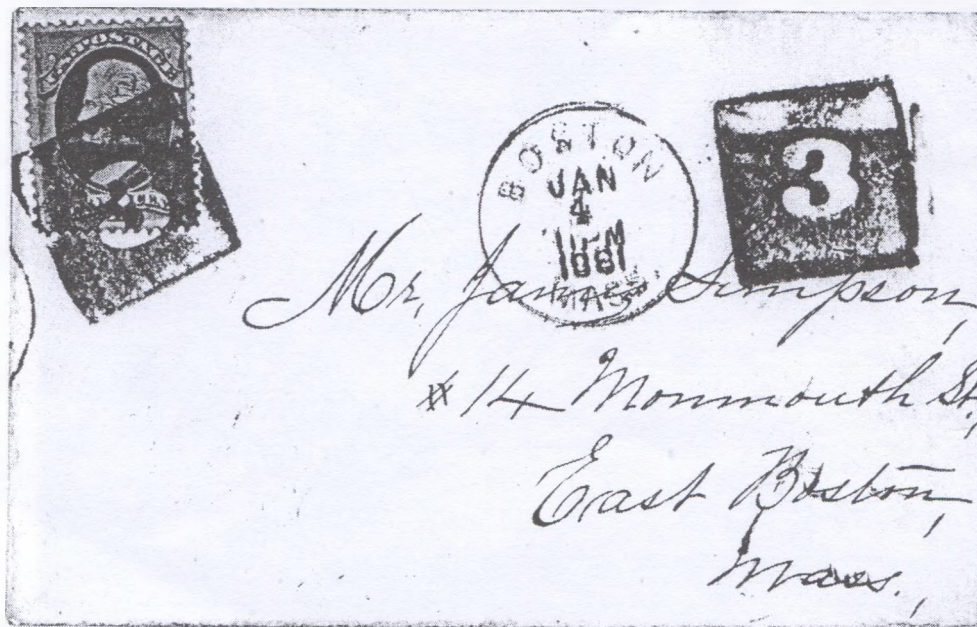 U.S. POSTAGE
BOSTON
JAN
4
1881
MASS.
3
Mr. James Simpson,
# 14 Monmouth St.,
East Boston,
Mass.,